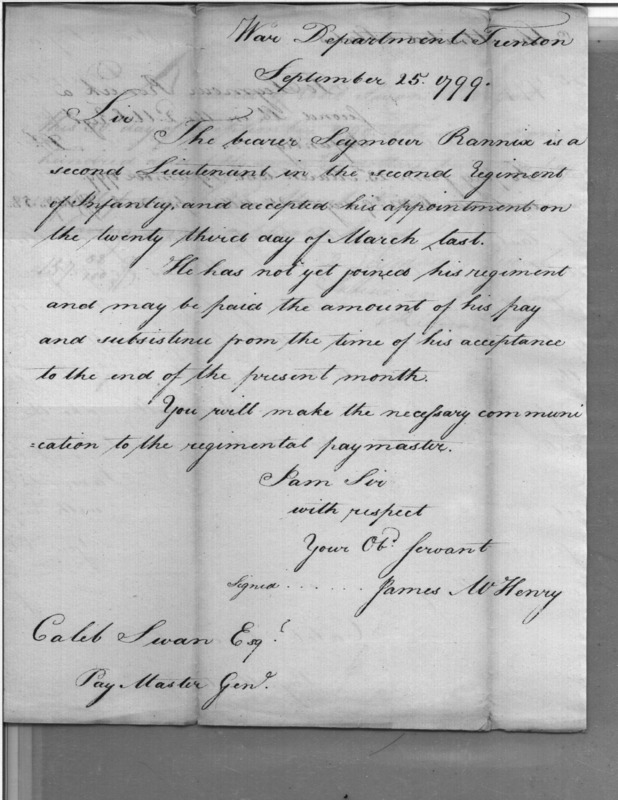 War Department Trenton
September 25. 1799.
Sir
The bearer Seymour Rannix is a
second Lieutenant in the second regiment
of Infantry, and accepted his appointment on
the twenty third day of March last.
He has not yet joined his regiment
and may be paid the amount of his pay
and subsistence from the time of his acceptance
to the end of the present month.
You will make the necessary communi
=cation to the regimental paymaster.
I am Sir
with respect
Your Obt. Servant
signed ...... James McHenry
Caleb Swan Esqr.
Pay Master Genl.